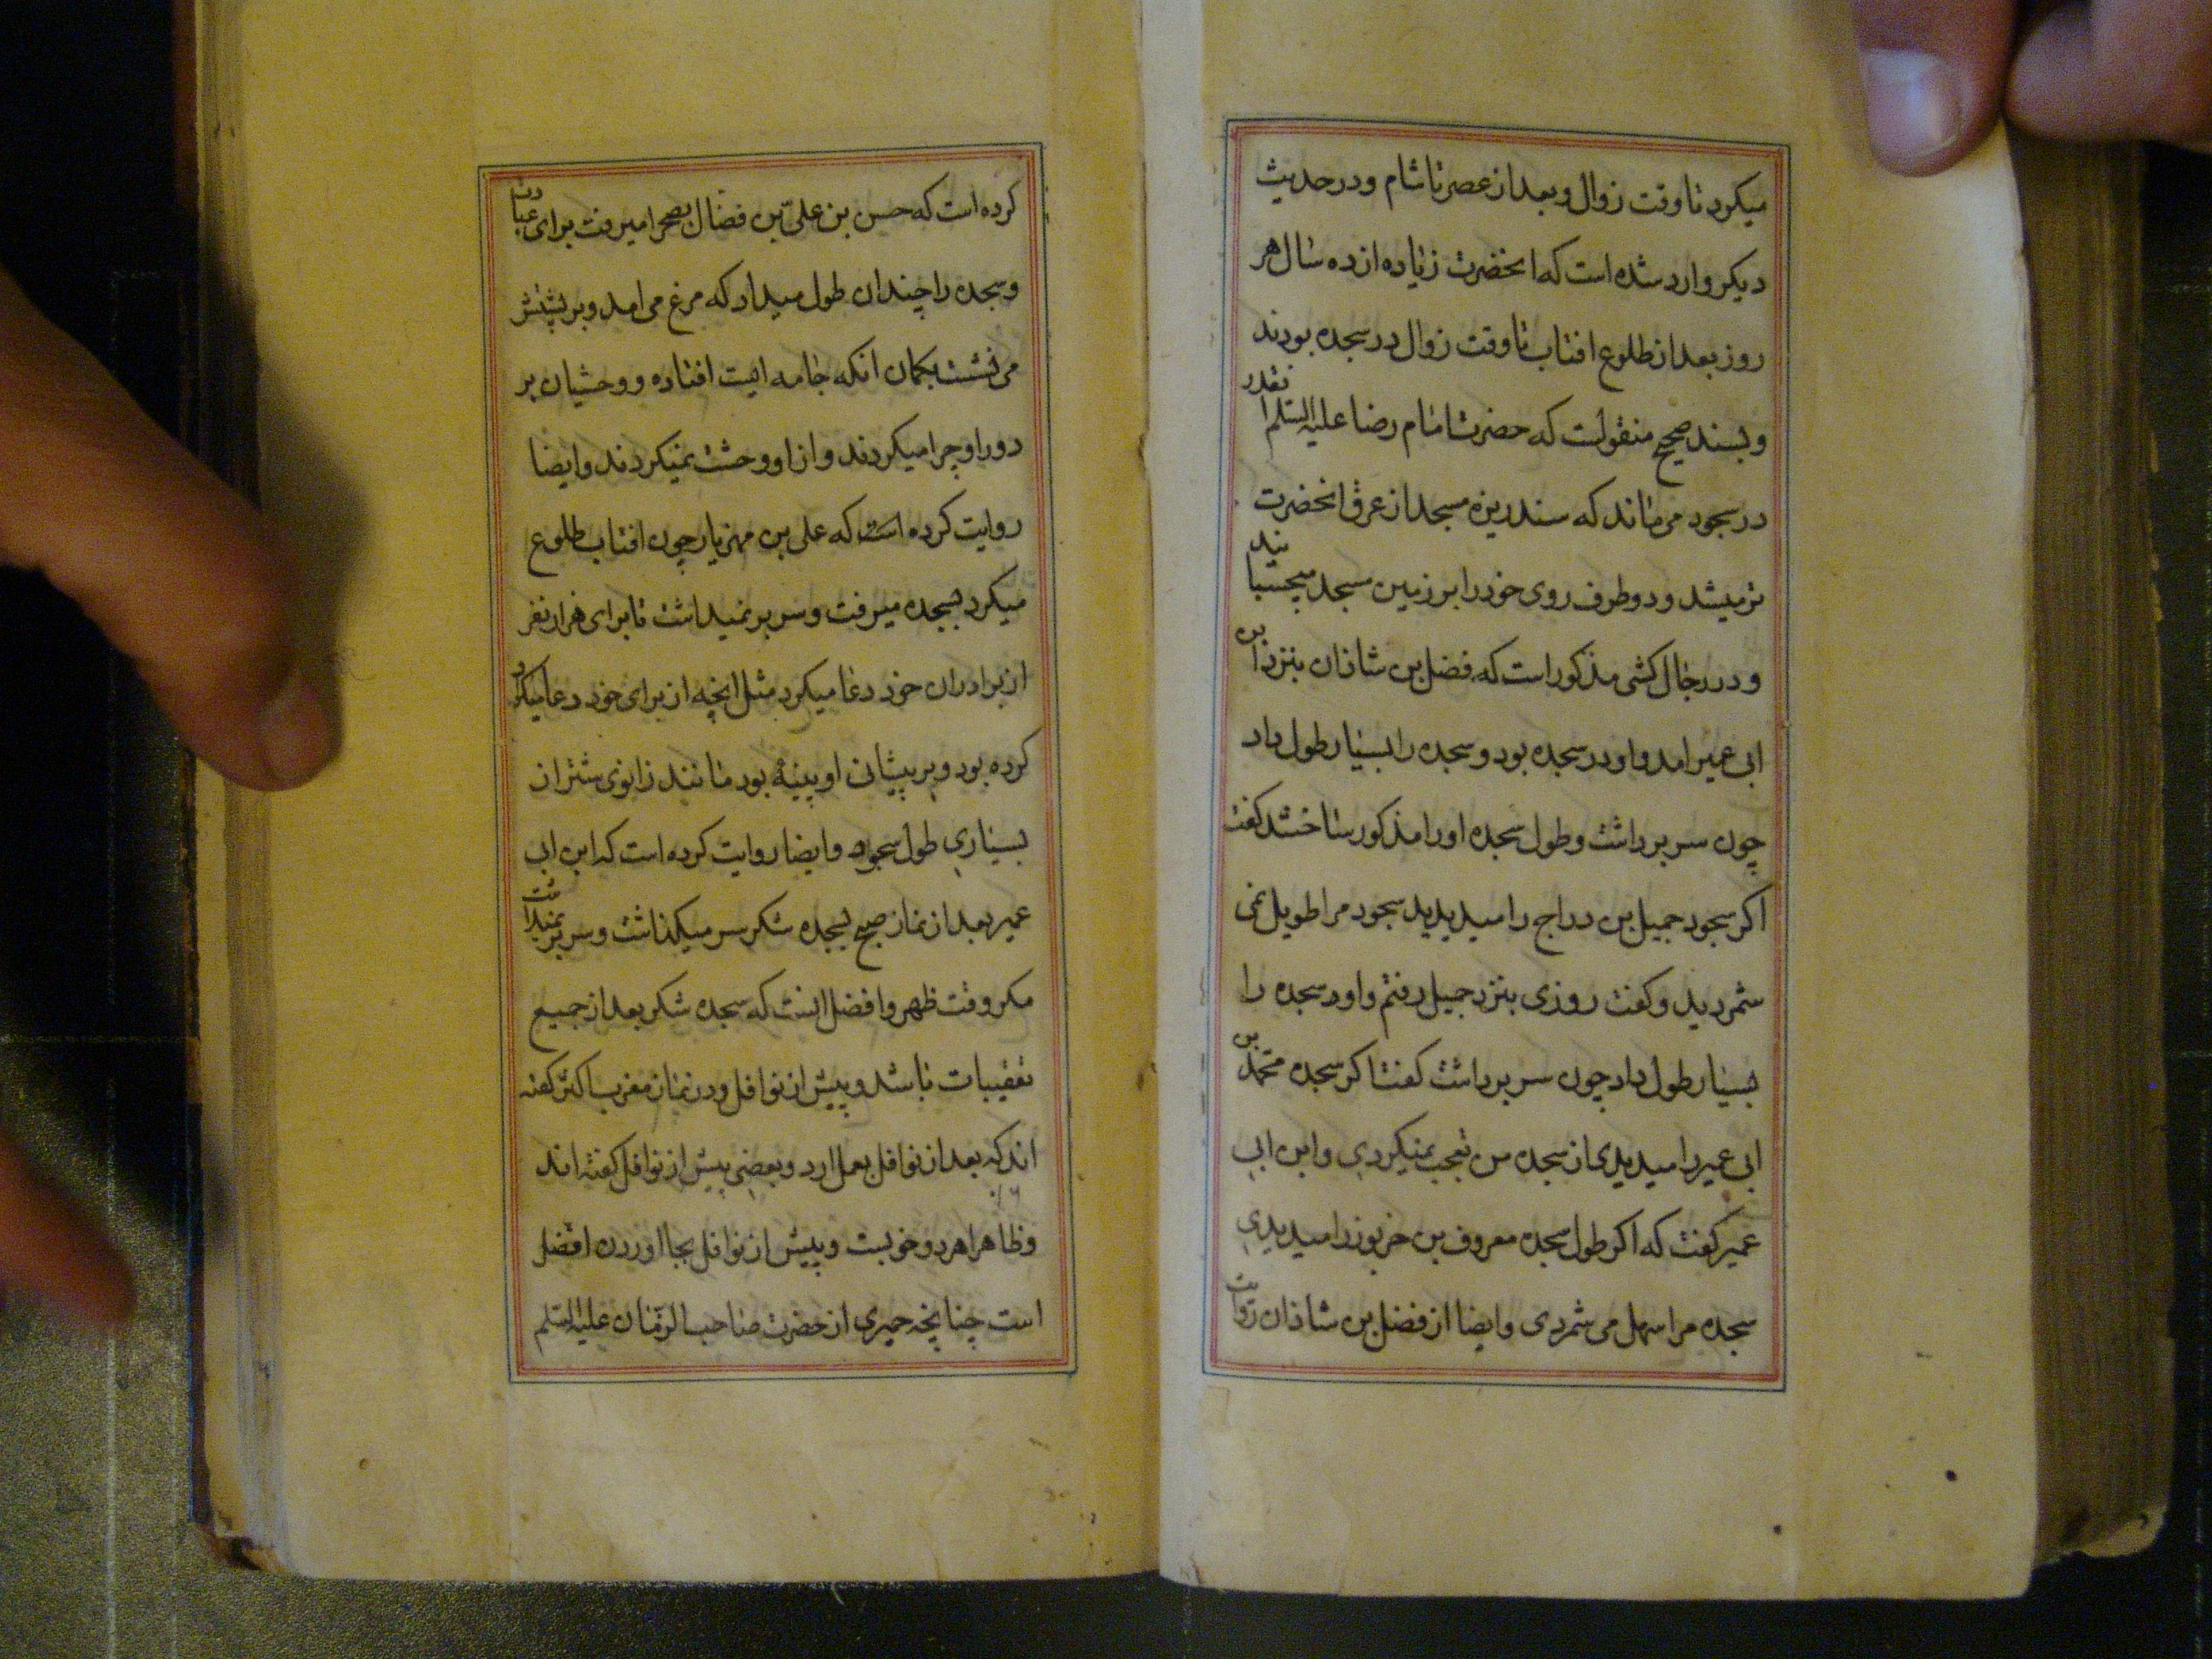 میکرد تا وقت زوال و بعد از عصر تا شام و در حدیث
دیکر وارد شده است که انحضرت زیاده از ده سال هر
روز بعد از طلوع افتاب تا وقت زوال در سجده بودند
و بسند صحیح منقولست که حضرت امام رضا علیه السلم انقدر
در سجود می ماند که سنکریزه مسجد از عرق انحضرت
تر میشد و دو طرف روی خود را بر زمین مسجد میچسبانیدند
و در رجال کشی مذکور است که فضل بن شاذان بنزد ابن
ابی عمیر امد و او در سجده بود و سجده را بسیار طول داد
چون سر برداشت و طول سجده او را مذکور ساختند کفت
اکر سجود جمیل بن دراج را میدیدید سجود مرا طویل نمی
شمردید و کفت روزی بنزد جمیل رفتم و او سجده را
بسیار طول داد چون سر برداشت کفت اکر سجده محمد بن
ابی عمیر را میدیدی از سجده من تعجب نمیکردی و ابن ابی
عمیر کفت که اکر طول سجده معروف بن خربوز را میدیدی
سجده مرا سهل می شمردی و ایضا از فضل بن شاذان روایت
کرده است که حسن بن علی بن فضال بصحرا میرفت برای عبادت
و سجده را چندان طول میداد که مرغ می امد و بر پشتش
می نشست بکمان انکه جامه ایست افتاده و وحشیان بر
دور او چرا میکردند و از او وحشت نمیکردند و ایضا
روایت کرده است که علی بن مهزیار چون افتاب طلوع
میکرد بسجده میرفت و سر بر نمیداشت تا برای هزار نفر
از برادران خود دعا میکرد مثل انچه از برای خود دعا میکرد
کرده بود و بر پیشانی او پینهٔ بود مانند زانوی شتر از
بسیاری طول سجود و ایضا روایت کرده است که ابن ابی
عمیر بعد از نماز صبح بسجده شکر سر میکذاشت و سر بر نمیداشت
مکر وقت ظهر و افضل انست که سجده شکر بعد از جمیع
تعقیبات باشد و پیش از نوافل و در نماز مغرب اکثر کفته
اند که بعد از نوافل بعمل ارد و بعضی پیش از نوافل کفته اند
و ظاهرا هر دو خوبست و پیش از نوافل بجا اوردن افضل
است چنانچه حمیری از حضرت صاحب الزمان علیه السلم